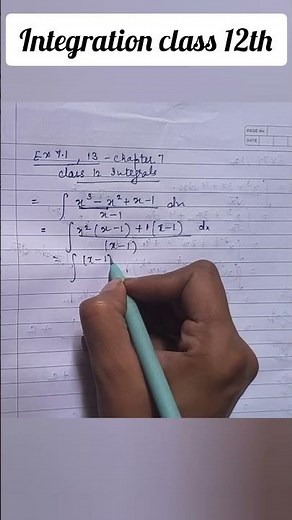 Integration class 12th
PAGE No.
DATE
Ex 7.1, 13 - chapter 7
class 12 Integrals
= ∫ x³ - x² + x - 1 / x - 1 dx
= ∫ x² (x - 1) + 1 (x - 1) / (x - 1) dx
= ∫ (x - 1)